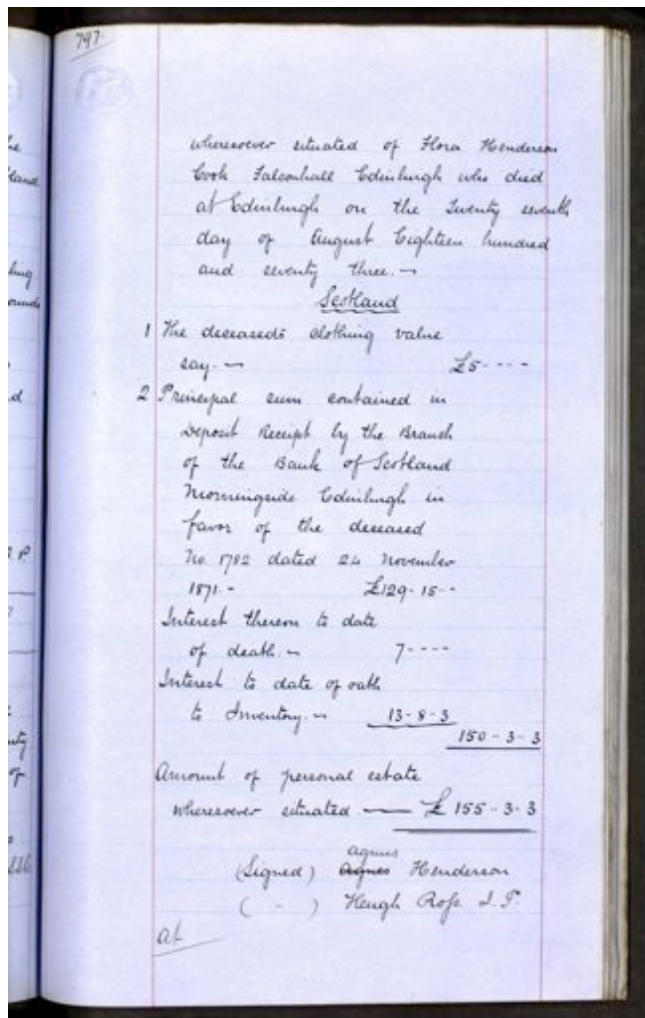 797.
wheresoever situated of Flora Henderson
Cook Falconhall Edinburgh who died
at Edinburgh on the Twenty seventh
day of August Eighteen hundred
and seventy three.~
Scotland
1 The deceased's clothing value
say.~ £5----
2 Principal sum contained in
Deposit Receipt by the Branch
of the Bank of Scotland
Morningside Edinburgh in
favor of the deceased
No. 1782 dated 24 November
1871.- £129-15--
Interest thereon to date
of death.~ 7----
Interest to date of oath
to Inventory.~ 13-8-3
150-3-3
Amount of personal estate
wheresoever situated.— £155-3-3
agnes
(Signed) Agnes Henderson
( - ) Heugh Ross J.P.
at